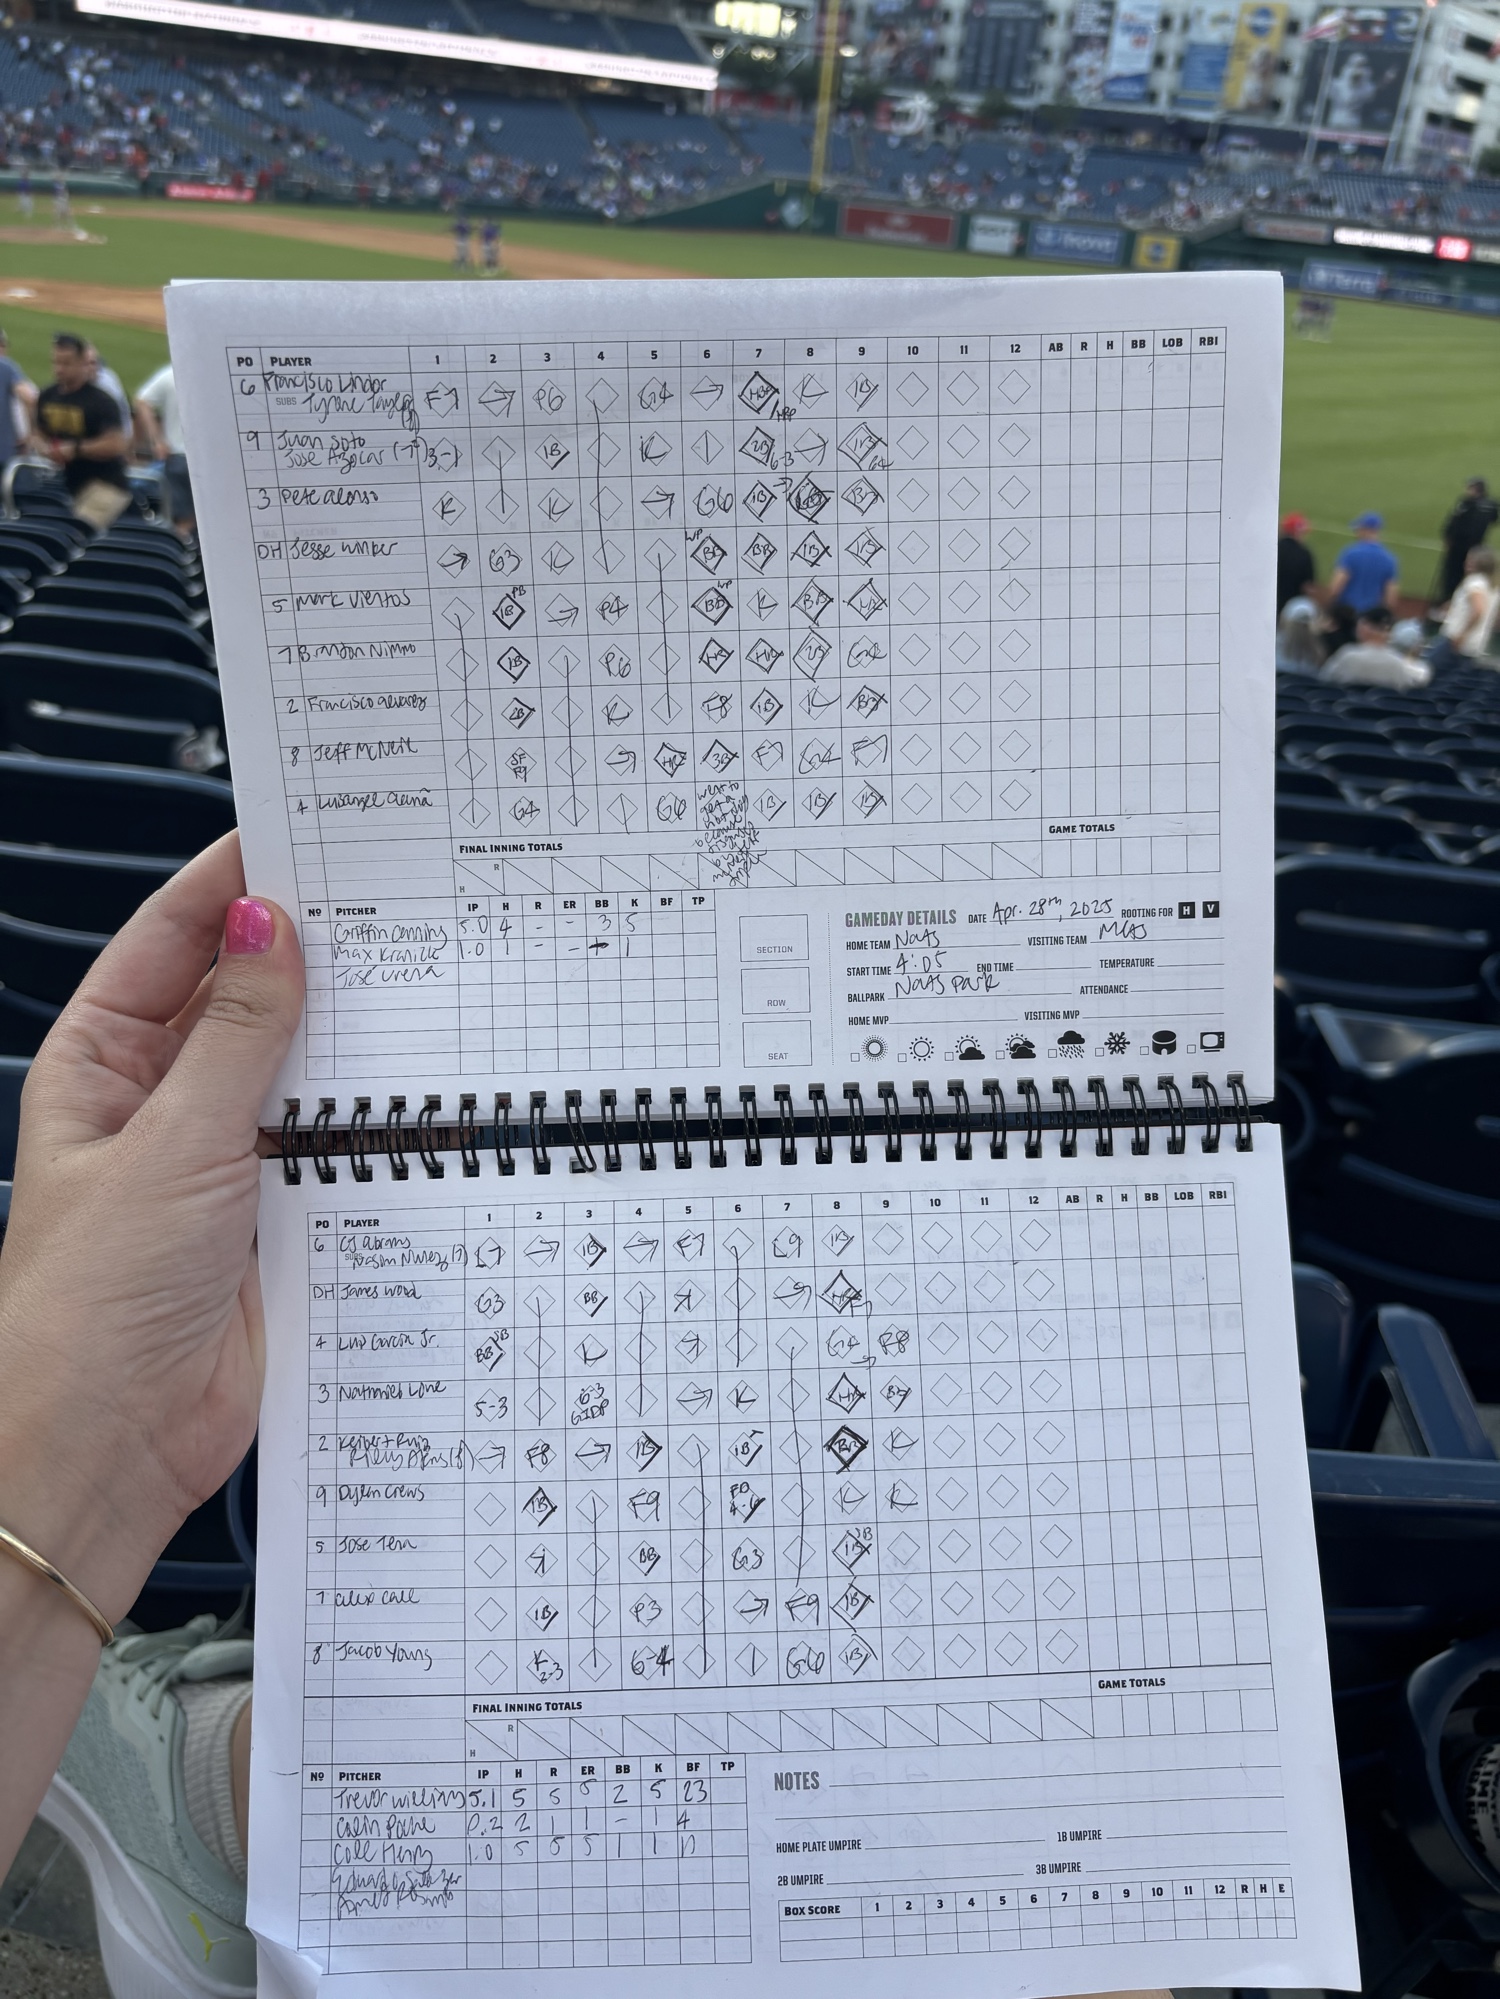 PO PLAYER 1 2 3 4 5 6 7 8 9 10 11 12 AB R H BB LOB RBI
6 Francisco Lindor F7 → P6 G4 → HBP K 1B
SUBS Tyrone Taylor
9 Juan Soto 3-1 1B K 2B → 1B
Jose Azocar (7)
3 Pete Alonso K K → G6 1B BB
DH Jesse Winker → G3 K WP BB BB 1B 1B
5 Mark Vientos 1B PB → P4 BB WP K BB
7 Brandon Nimmo 1B P6 HR HR 2B G4
2 Francisco Alvarez 2B K F8 1B K BB
8 Jeff McNeil SF F9 → HR 3B F7 G4 F7
4 Luisangel Acuña G4 G6 1B 1B 1B
went to get a hot dog because
FINAL INNING TOTALS
GAME TOTALS
R
H
Nº PITCHER IP H R ER BB K BF TP
Griffin Canning 5.0 4 - - 3 5
Max Kranick 1.0 1 - - 1
José Urena
SECTION
ROW
SEAT
GAMEDAY DETAILS DATE Apr. 28th, 2025 ROOTING FOR H V
HOME TEAM Nats VISITING TEAM Mets
START TIME 4:05 END TIME TEMPERATURE
BALLPARK Nats Park ATTENDANCE
HOME MVP VISITING MVP
PO PLAYER 1 2 3 4 5 6 7 8 9 10 11 12 AB R H BB LOB RBI
6 CJ Abrams L7 → 1B → F7 L9 1B
SUBS Nasim Nunez (7)
DH James Wood G3 BB K →
4 Luis Garcia Jr. BB SB K K G4 → F8
3 Nathaniel Lowe 5-3 6-3 GIDP → K BB
2 Keibert Ruiz → F8 → 1B 1B BB K
Riley Adams (8)
9 Dylan Crews 1B F9 FO 4-6 K K
5 Jose Tena K BB G3 1B SB
7 Alex Call 1B P3 → F9 1B
8 Jacob Young K 2-3 6-4 G6 1B
FINAL INNING TOTALS
GAME TOTALS
R
H
Nº PITCHER IP H R ER BB K BF TP
Trevor Williams 5.1 5 5 5 2 5 23
Colin Poche 0.2 2 1 1 - 1 4
Cole Henry 1.0 5 5 5 1 1 11
Eduardo Salazar
NOTES
HOME PLATE UMPIRE 1B UMPIRE
2B UMPIRE 3B UMPIRE
BOX SCORE 1 2 3 4 5 6 7 8 9 10 11 12 R H E